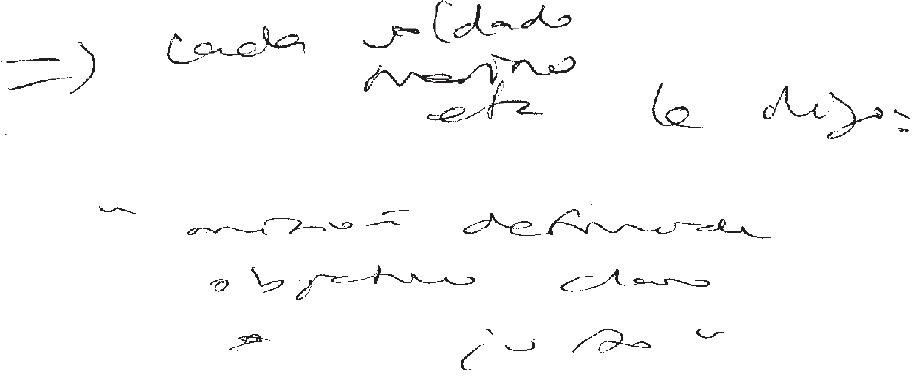 => cada soldado
marino
etc le dijo:
" misión definida
objetivo claro
" justo "